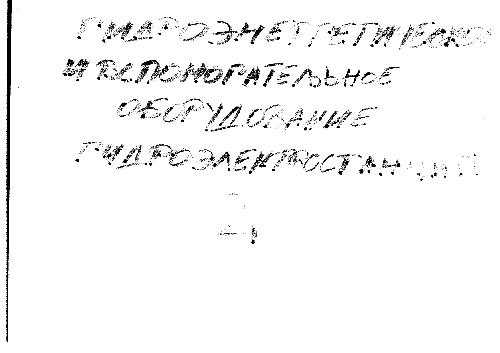 ГИДРОЭНЕРГЕТИЧЕСКОЕ
И ВСПОМОГАТЕЛЬНОЕ
ОБОРУДОВАНИЕ
ГИДРОЭЛЕКТРОСТАНЦИЙ